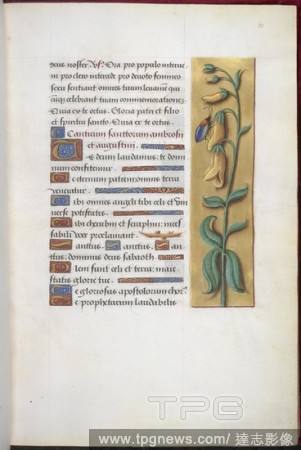 deus noster. Vs. Ora pro populo interue
ni pro clero intercede pro deuoto femineo
sexu sentiant omnes tuum leuamen qui
cunque celebrant tuam commemorationem
Quia ex te ortus. Gloria patri et filio
et spiritui sancto. Quia ex te ortus.
Canticum sanctorum ambrosii
et augustini
Te deum laudamus: te domi
num confitemur
Te eternum patrem omnis terra
veneratur
Tibi omnes angeli tibi celi et vni
uerse potestates
Tibi cherubin et seraphin: inces
sabili voce proclamant
Sanctus. Sanctus. San
ctus: dominus deus sabaoth
Pleni sunt celi et terra: maie
statis glorie tue
Te gloriosus apostolorum chorus
Te prophetarum laudabilis
TPG
www.tpgnews.com/ 達志影像